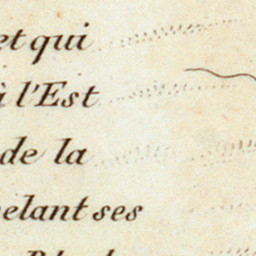 et qui
à l'Est
de la
elant ses